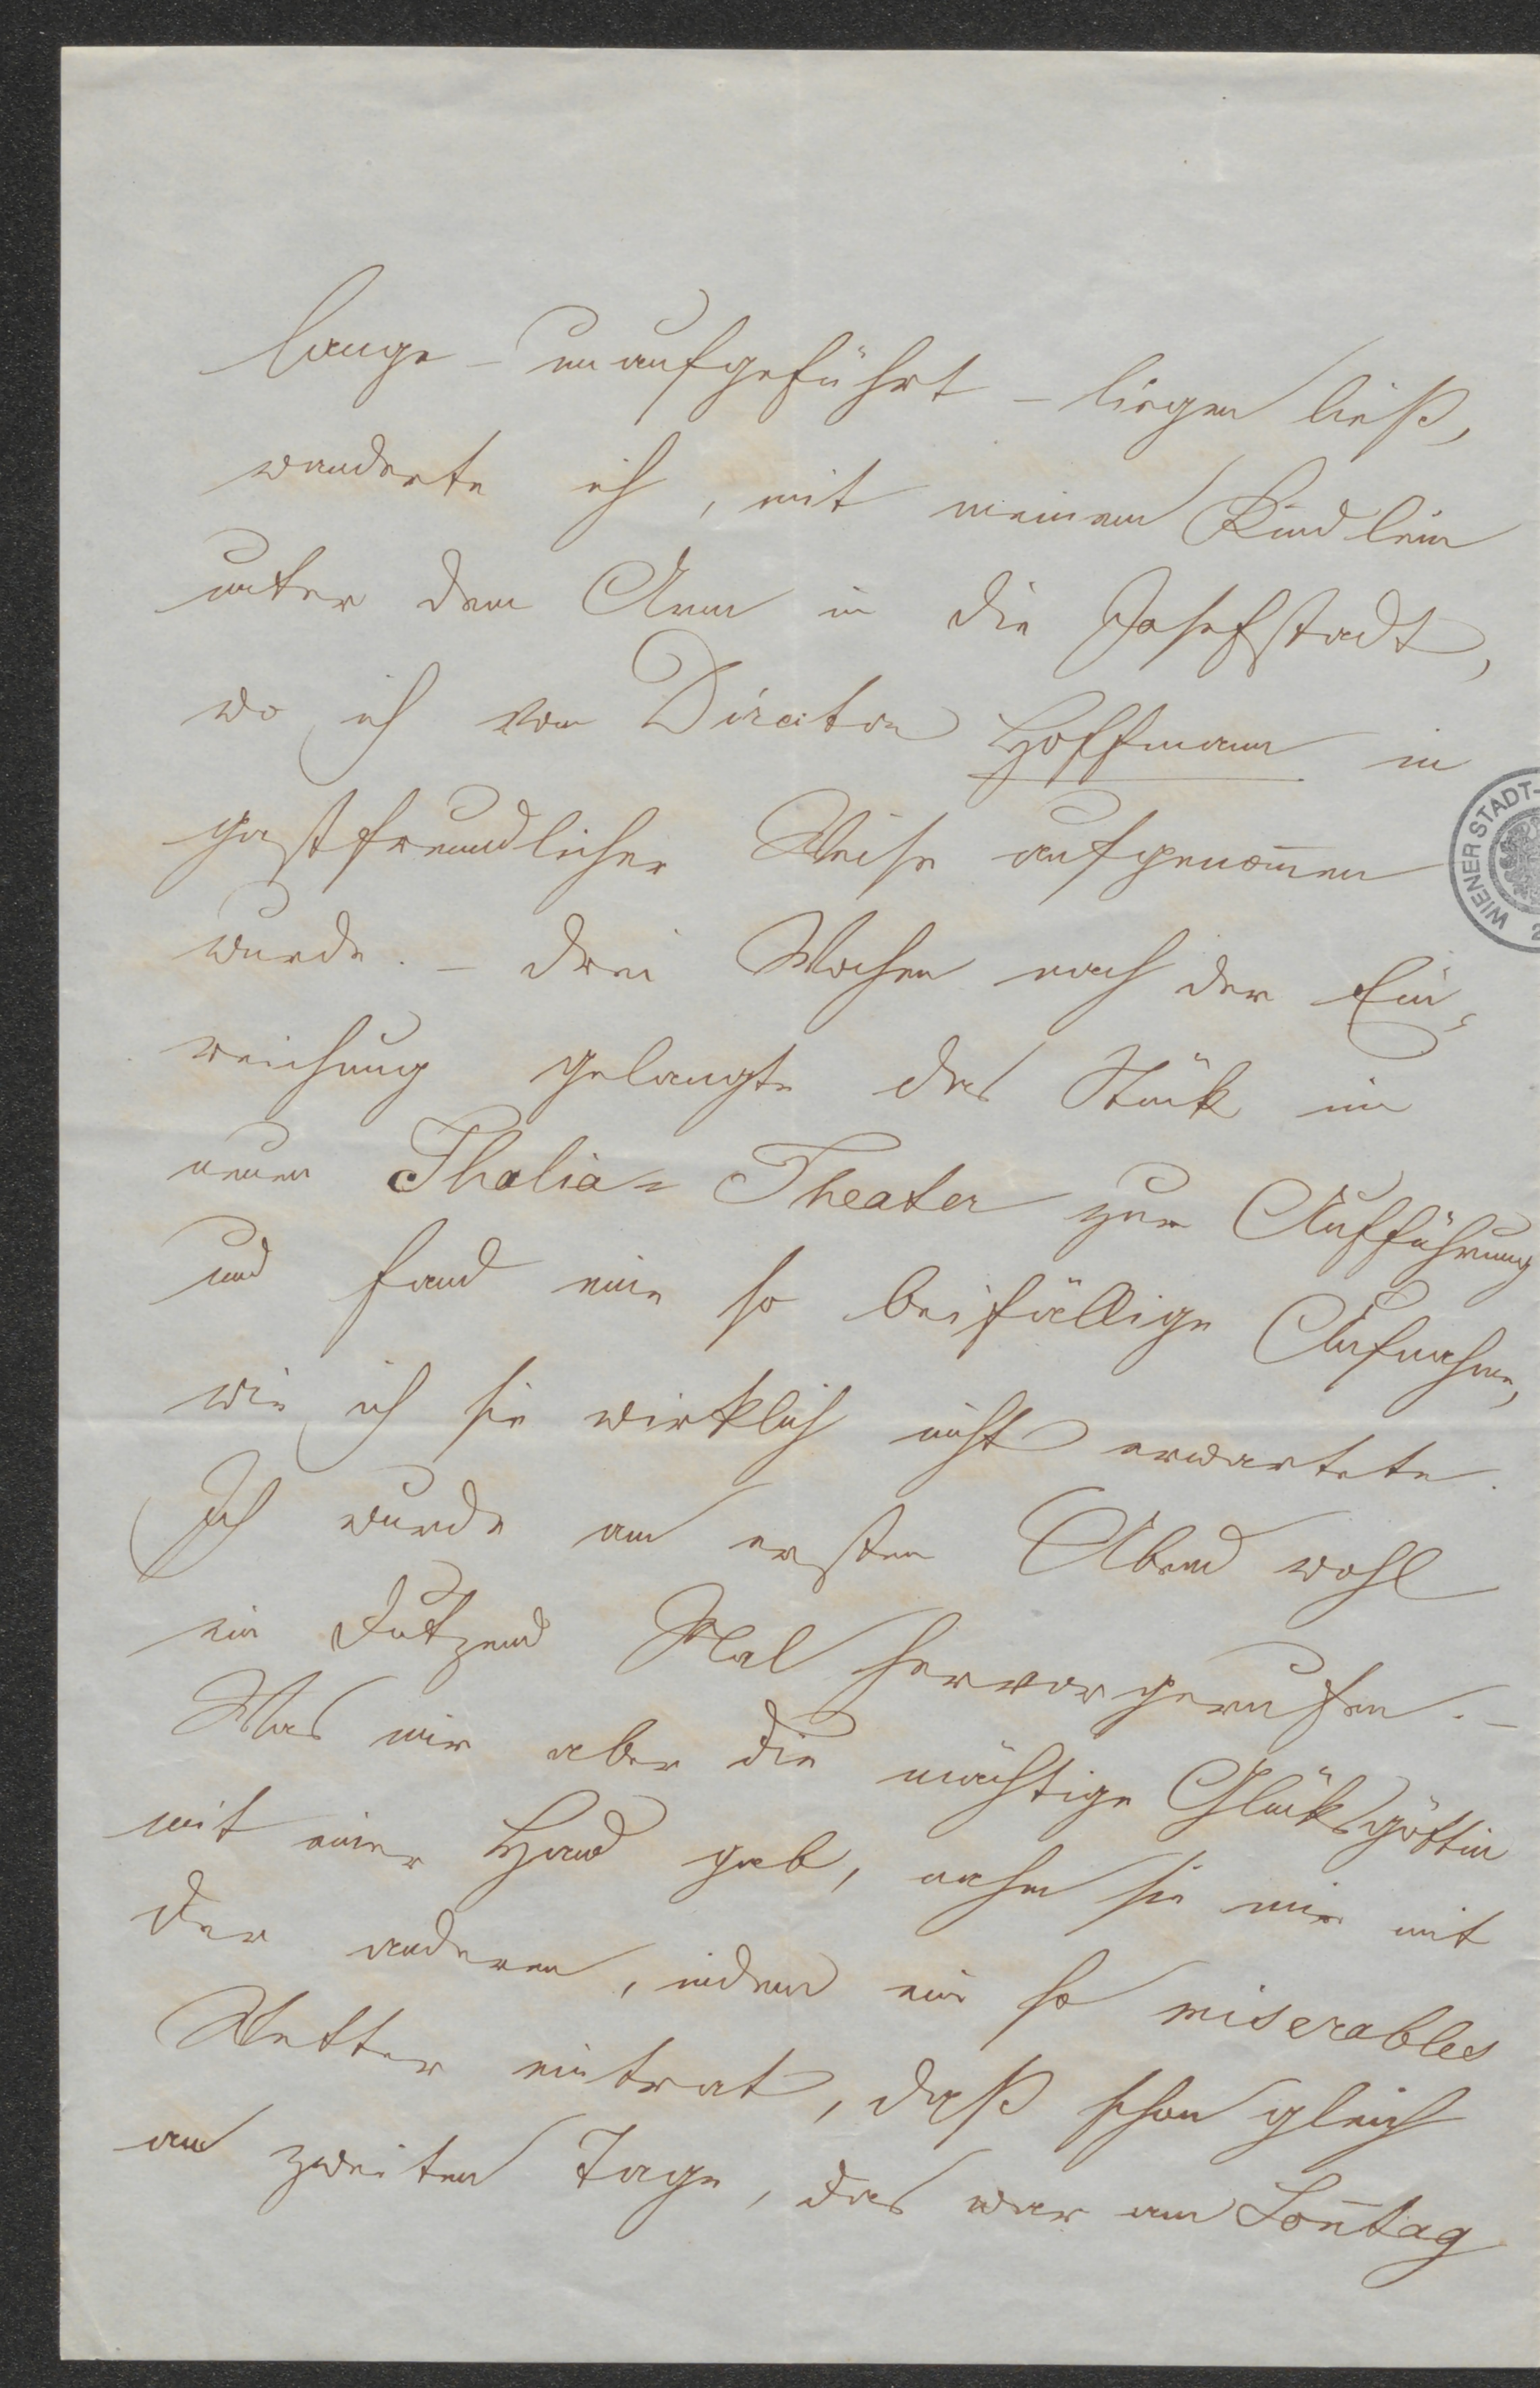 lange – unaufgeführt – liegen ließ,
wanderte ich, mit meinem Kindlein
unter dem Arm in die Josefstadt,
wo ich von Director Hoffmann in
gastfreundlicher Weise aufgenom̄en
wurde. – Drei Wochen nach der Ein,
reichung gelangte das Stück im
neuen Thalia= Theater zur Aufführung
und fand eine so beifällige Aufnahme,
wie ich sie wirklich nicht erwartete.
Ich wurde am ersten Abend wohl
ein Dutzend Mal hervorgerufen. –
Was mir aber die mächtige Glücksgöttin
mit einer Hand gab, nahm sie mir mit
der anderen, indem ein so miserables
Wetter eintrat, daß schon gleich
am zweiten Tage, das war am Son̄tag
WIENER STADT-
2